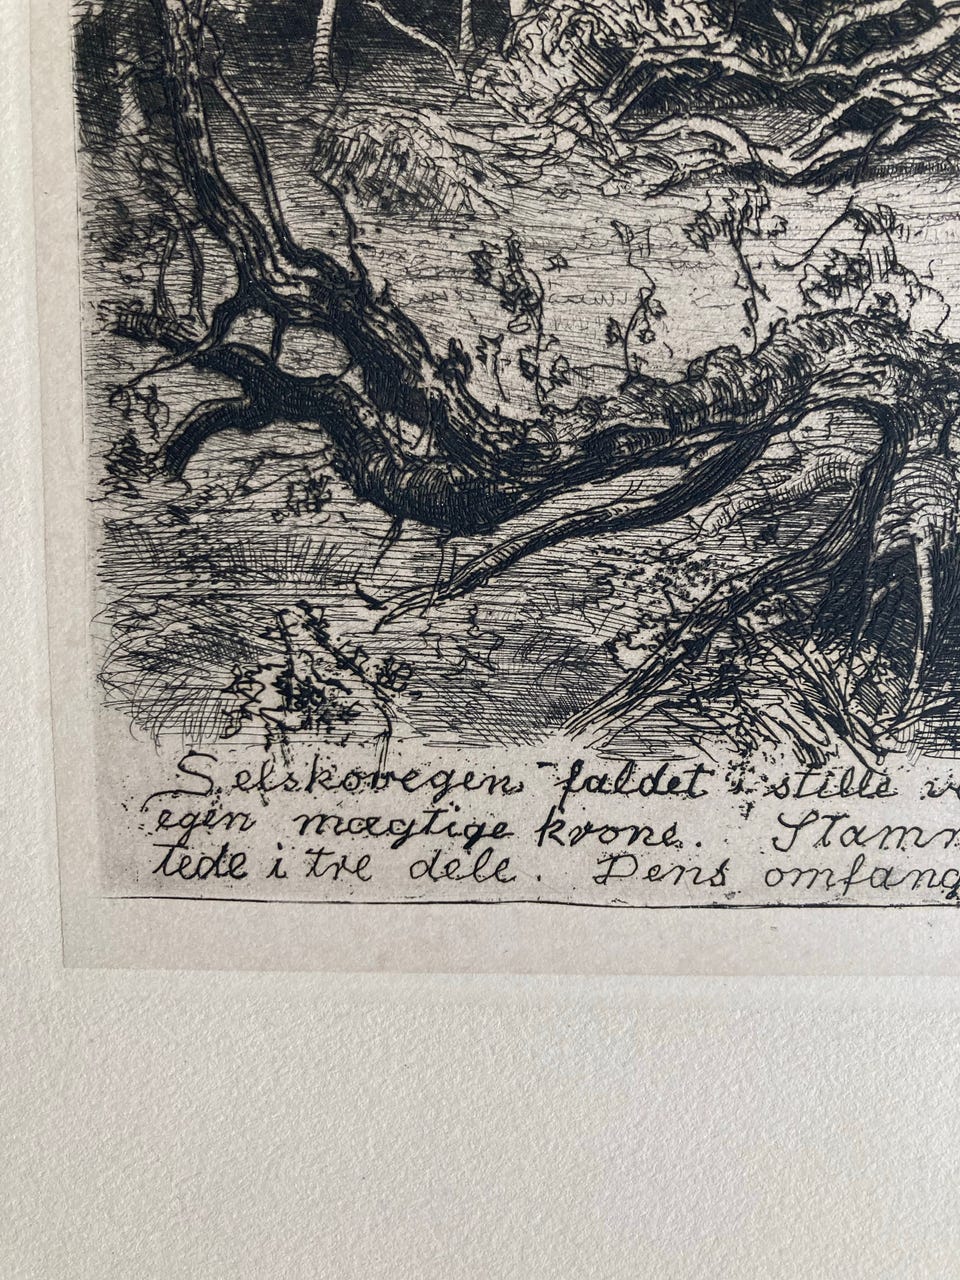 Selskovegen faldet i stille v
egen mægtige krone. Stamm
tede i tre dele. Dens omfang